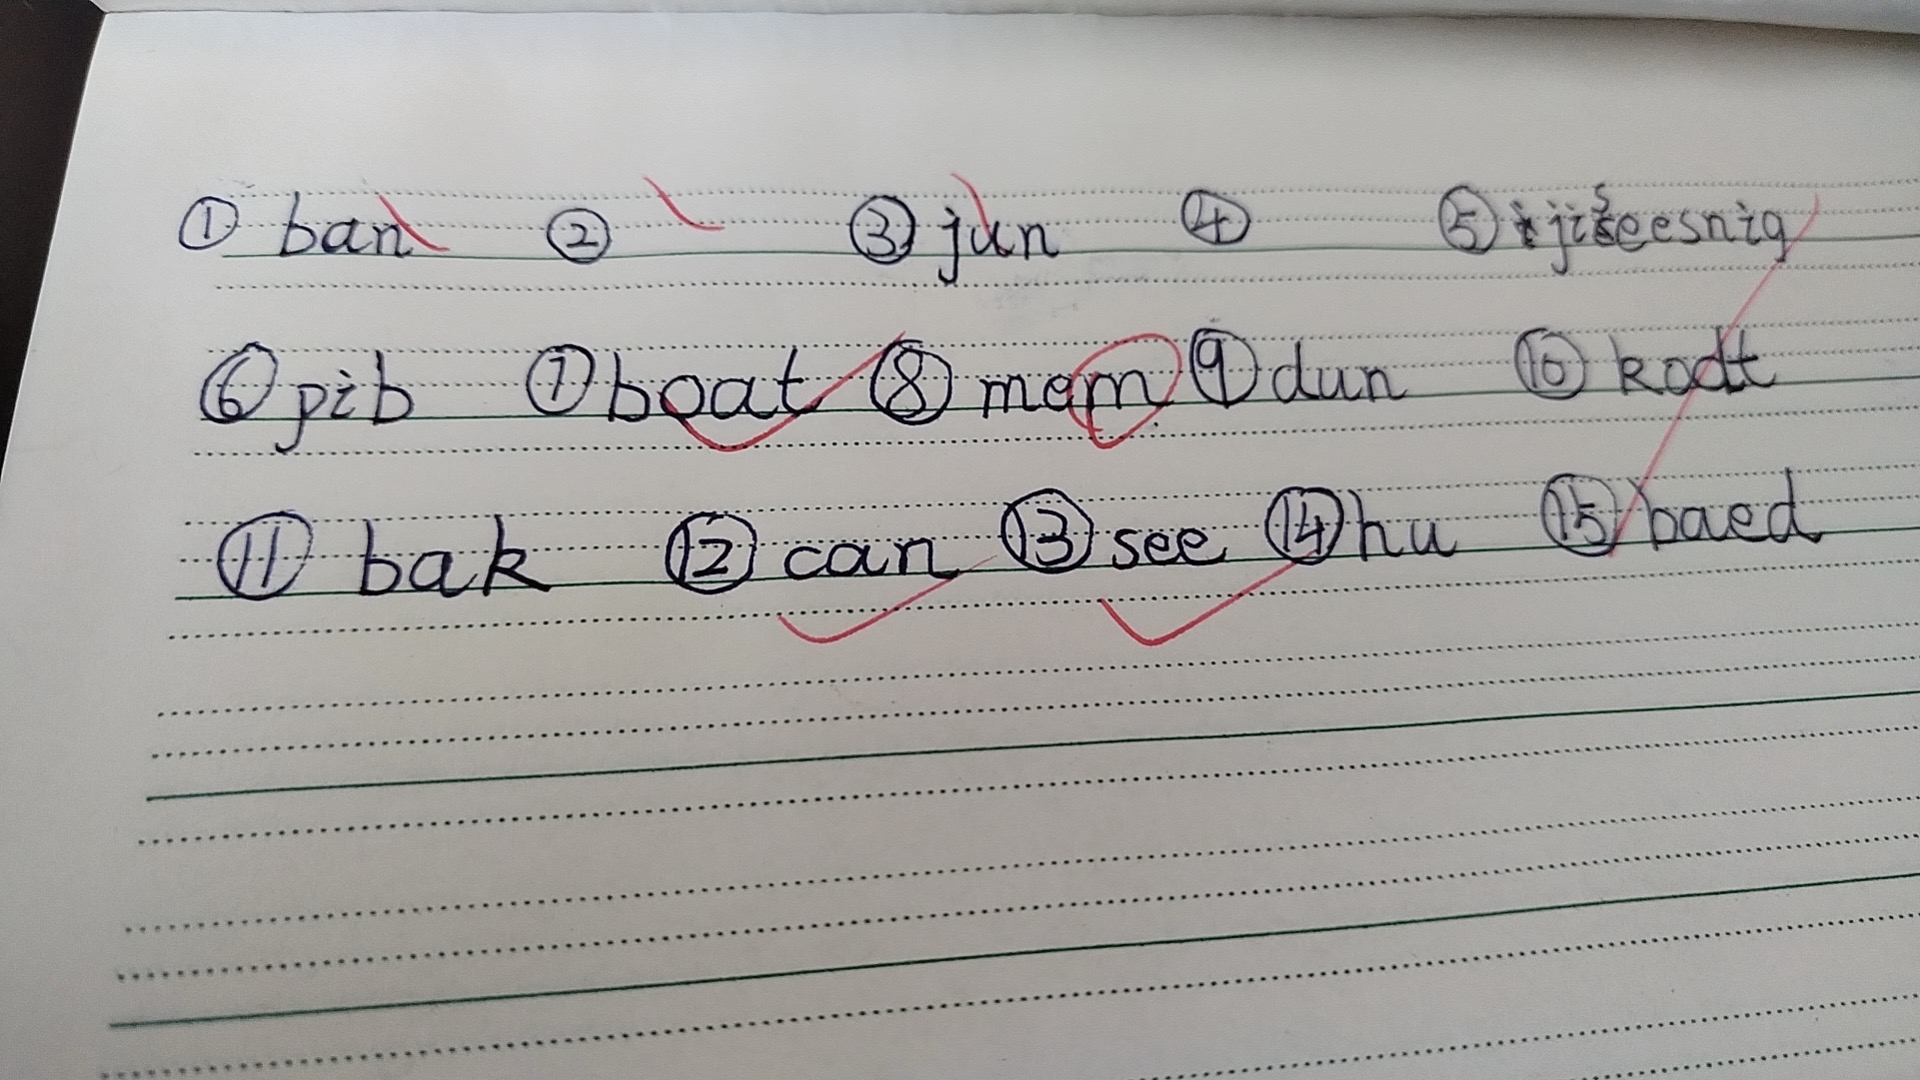 ① ban ② ③ jun ④ ⑤ jiseesnig
⑥ pib ⑦ boat ⑧ mam ⑨ dun ⑩ kodt
⑪ bak ⑫ can ⑬ see ⑭ hu ⑮ baed